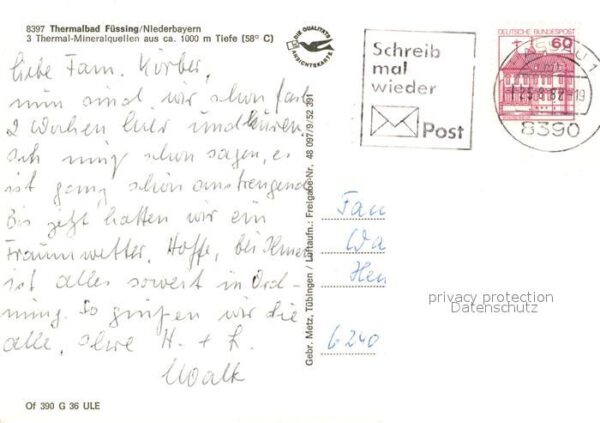 8397 Thermalbad Füssing/Niederbayern
3 Thermal-Mineralquellen aus ca. 1000 m Tiefe (58° C)
DIE QUALITÄTS ANSICHTSKARTE
Liebe Fam. Körber,
nun sind wir schon fast
2 Wochen hier und kuren,
ich muß schon sagen, es
ist ganz schön anstrengend
Bis jetzt hatten wir ein
Traumwetter. Hoffe, bei Ihnen
ist alles soweit in Ord-
nung. So grüßen wir Sie
alle, Ihre H. + L.
Of 390 G 36 ULE
Gebr. Metz, Tübingen / Luftaufn.: Freigabe-Nr. 48 097/9/52 391
Schreib
mal
wieder
Post
DEUTSCHE BUNDESPOST
60
8390
Fam
Wa
Hen
6240
privacy protection
Datenschutz